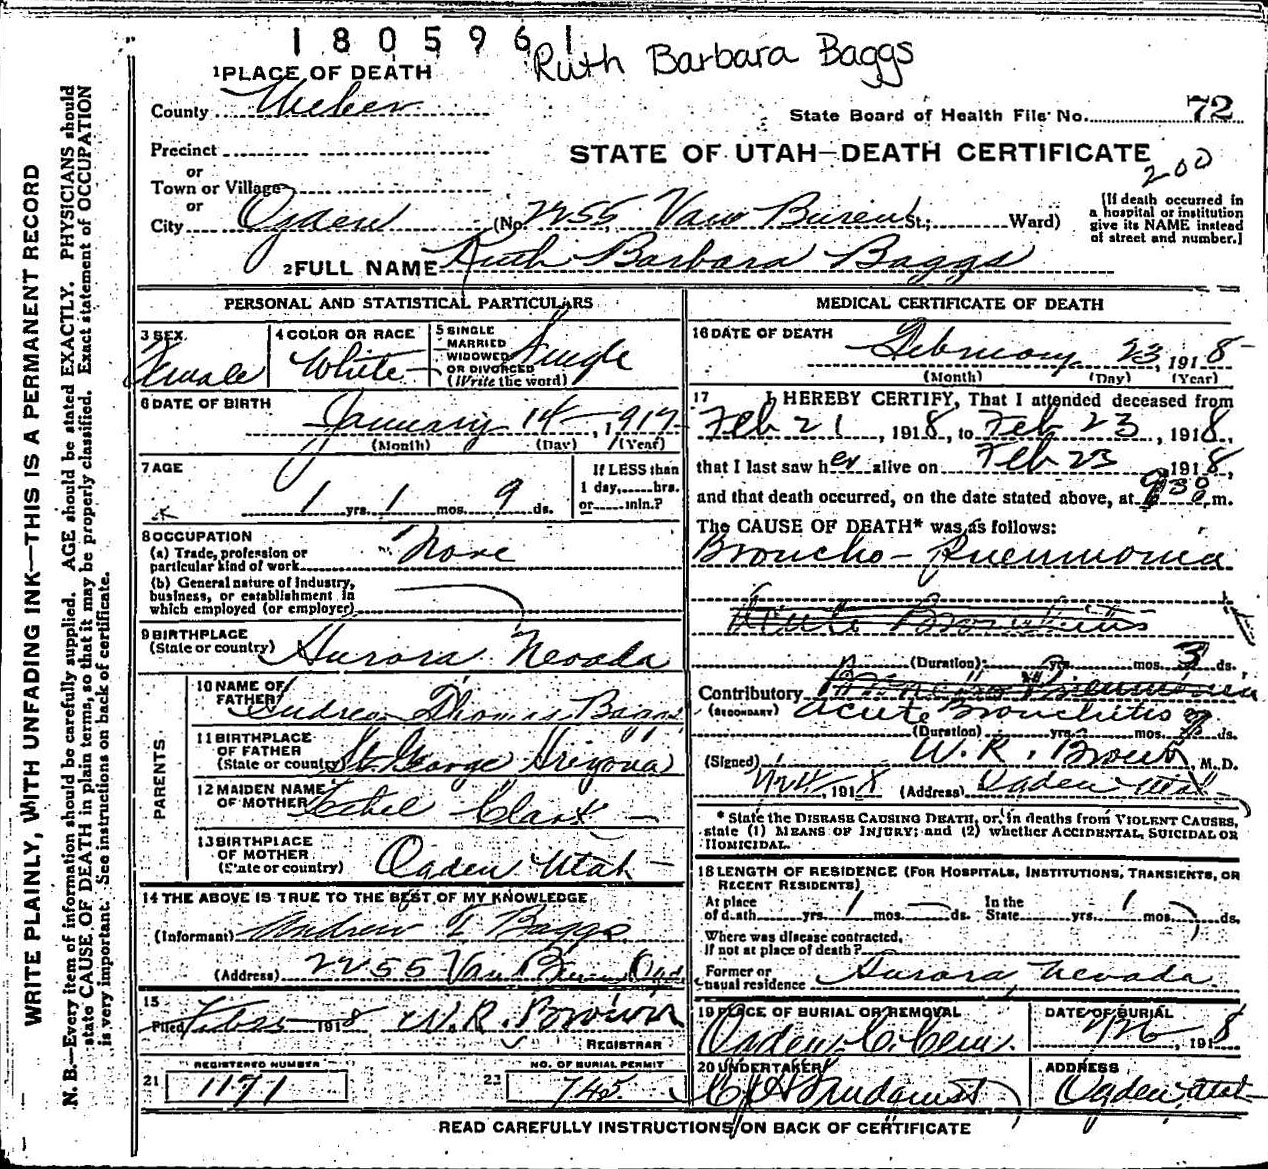 1805961
Ruth Barbara Baggs
1 PLACE OF DEATH
County Weber
State Board of Health File No. 72
Precinct
STATE OF UTAH—DEATH CERTIFICATE
200
or
Town or Village
or
City Ogden (No. 2255 Van Buren St.; Ward)
[If death occurred in
a hospital or institution
give its NAME instead
of street and number.]
2 FULL NAME Ruth Barbara Baggs
WRITE PLAINLY, WITH UNFADING INK—THIS IS A PERMANENT RECORD
N. B.—Every item of information should be carefully supplied. AGE should be stated EXACTLY. PHYSICIANS should
state CAUSE OF DEATH in plain terms, so that it may be properly classified. Exact statement of OCCUPATION
is very important. See instructions on back of certificate.
PERSONAL AND STATISTICAL PARTICULARS
3 SEX
Female
4 COLOR OR RACE
White
5 SINGLE
MARRIED
WIDOWED
OR DIVORCED
(Write the word)
Single
6 DATE OF BIRTH
January 14, 1917
(Month) (Day) (Year)
7 AGE
1 yrs. 1 mos. 9 ds.
If LESS than
1 day, hrs.
or min.?
8 OCCUPATION
(a) Trade, profession or
particular kind of work None
(b) General nature of Industry,
business, or establishment in
which employed (or employer)
9 BIRTHPLACE
(State or country) Aurora Nevada
PARENTS
10 NAME OF
FATHER Andrew Thomas Baggs
11 BIRTHPLACE
OF FATHER
(State or country) St. George Arizona
12 MAIDEN NAME
OF MOTHER Clark
13 BIRTHPLACE
OF MOTHER
(State or country) Ogden Utah
14 THE ABOVE IS TRUE TO THE BEST OF MY KNOWLEDGE
(Informant) Andrew T Baggs
(Address) 2255 Van Buren Ogd
15
Filed 1918 W. R. Brown
REGISTRAR
REGISTERED NUMBER
21 1171
NO. OF BURIAL PERMIT
22 745
MEDICAL CERTIFICATE OF DEATH
16 DATE OF DEATH
February 23, 1918
(Month) (Day) (Year)
17 I HEREBY CERTIFY, That I attended deceased from
Feb 21, 1918, to Feb 23, 1918,
that I last saw her alive on Feb 23 1918,
and that death occurred, on the date stated above, at 9 30 m.
The CAUSE OF DEATH* was as follows:
Broncho-Pneumonia
Acute Bronchitis
(Duration) yrs. mos. 3 ds.
Contributory Broncho Pneumonia
(SECONDARY) Acute Bronchitis
(Duration) yrs. mos. ds.
(Signed) W. R. Brown, M. D.
2/24, 1918 (Address) Ogden Utah
* State the DISEASE CAUSING DEATH, or, in deaths from VIOLENT CAUSES,
state (1) MEANS OF INJURY; and (2) whether ACCIDENTAL, SUICIDAL OR
HOMICIDAL.
18 LENGTH OF RESIDENCE (FOR HOSPITALS, INSTITUTIONS, TRANSIENTS, OR
RECENT RESIDENTS)
At place
of death yrs. 1 mos. ds.
In the
State yrs. 1 mos. ds.
Where was disease contracted,
If not at place of death?
Former or
usual residence Aurora, Nevada.
19 PLACE OF BURIAL OR REMOVAL
Ogden C. Cem.
DATE OF BURIAL
2/26, 1918
20 UNDERTAKER
ADDRESS
Ogden, Utah
READ CAREFULLY INSTRUCTIONS ON BACK OF CERTIFICATE